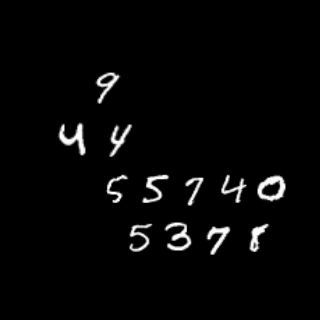 9
44
55740
5378